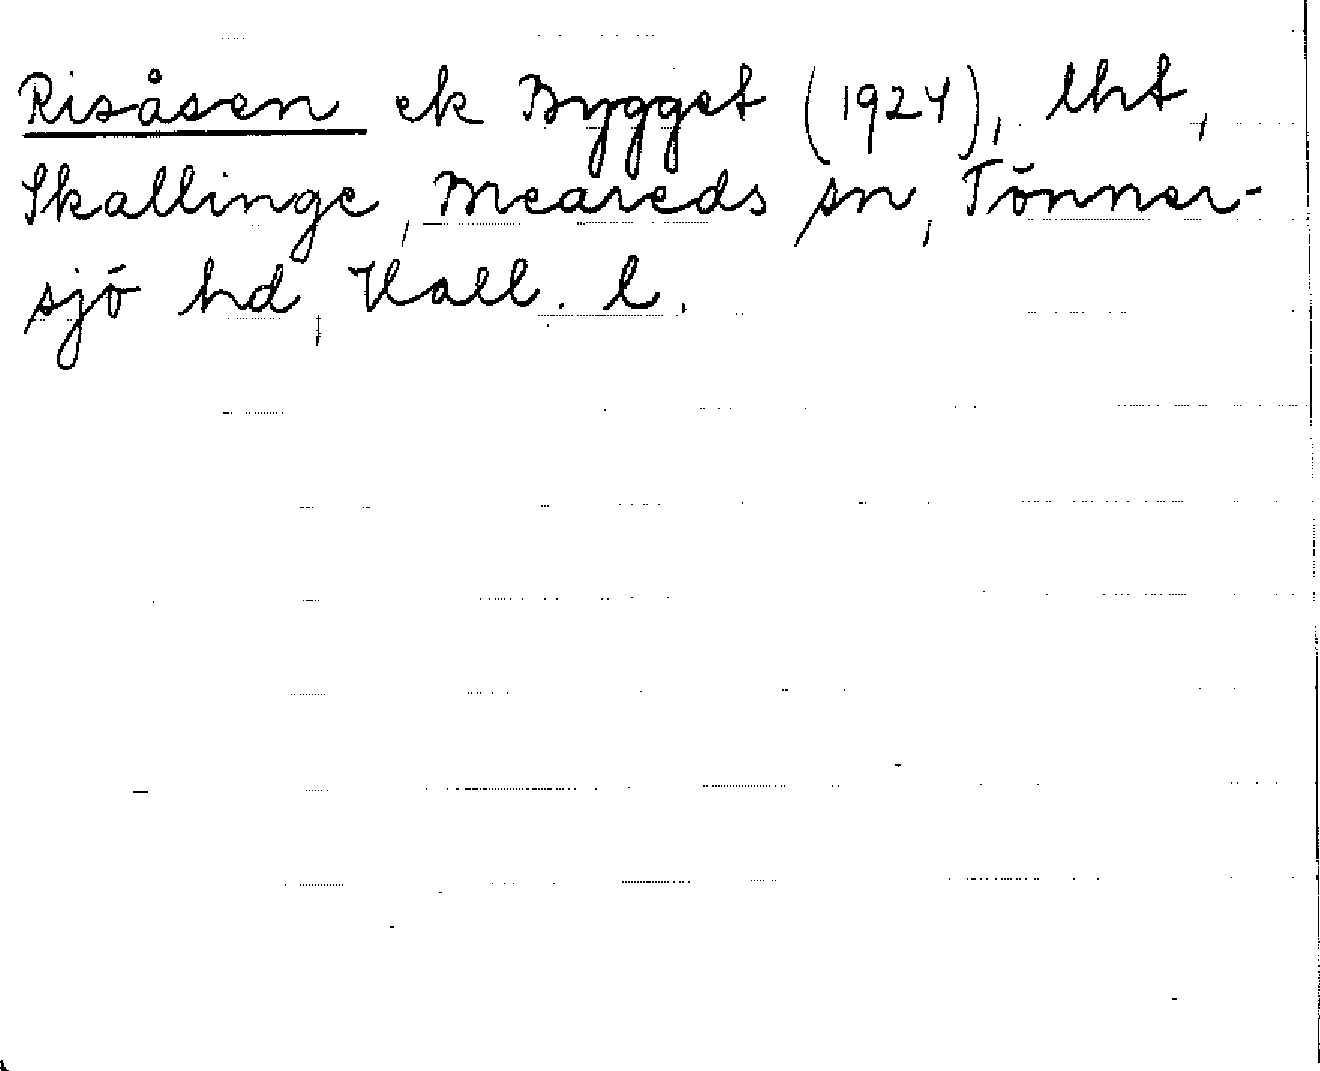 Risåsen ek Bygget (1924), lht,
Skallinge, Breareds sn, Tönner-
sjö hd, Hall. l.